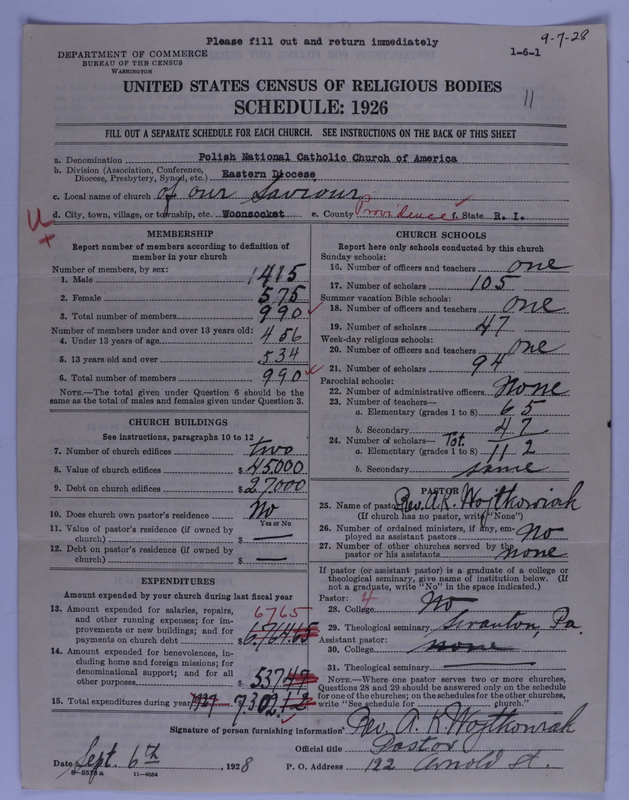 Please fill out and return immediately
9-7-28
DEPARTMENT OF COMMERCE
BUREAU OF THE CENSUS
WASHINGTON
1-6-1
UNITED STATES CENSUS OF RELIGIOUS BODIES
SCHEDULE: 1926
11
FILL OUT A SEPARATE SCHEDULE FOR EACH CHURCH. SEE INSTRUCTIONS ON THE BACK OF THIS SHEET
a. Denomination Polish National Catholic Church of America
b. Division (Association, Conference, Diocese, Presbytery, Synod, etc.) Eastern Diocese
c. Local name of church of our Saviour
d. City, town, village, or township, etc. Woonsocket e. County Providence f. State R. I.
MEMBERSHIP
Report number of members according to definition of
member in your church
Number of members, by sex:
1. Male 415
2. Female 575
3. Total number of members 990
Number of members under and over 13 years old:
4. Under 13 years of age 456
5. 13 years old and over 534
6. Total number of members 990
NOTE.—The total given under Question 6 should be
same as the total of males and females given under Question 3.
CHURCH BUILDINGS
See instructions, paragraphs 10 to 12
7. Number of church edifices two
8. Value of church edifices $ 45000
9. Debt on church edifices $ 27000
10. Does church own pastor's residence No
Yes or No
11. Value of pastor's residence (if owned by
church) $ —
12. Debt on pastor's residence (if owned by
church) $ —
EXPENDITURES
Amount expended by church during last fiscal year
13. Amount expended for salaries, repairs, 6765
and other running expenses; for im-
provements or new buildings; and for
payments on church debt $ 6,764.65
14. Amount expended for benevolences, in-
cluding home and foreign missions; for
denominational support; and for all
other purposes $ 537.47
15. Total expenditures during year 1927 $ 7302.12
CHURCH SCHOOLS
Report here only schools conducted by this church
Sunday schools:
16. Number of officers and teachers one
17. Number of scholars 105
Summer vacation Bible schools:
18. Number of officers and teachers one
19. Number of scholars 47
Week-day religious schools:
20. Number of officers and teachers one
21. Number of scholars 94
Parochial schools:
22. Number of administrative officers None
23. Number of teachers—
a. Elementary (grades 1 to 8) 65
b. Secondary 47
24. Number of scholars— Tot.
a. Elementary (grades 1 to 8) 112
b. Secondary same
PASTOR
25. Name of pastor Rev. A.K. Wojtkowiak
(If church has no pastor, write "None")
26. Number of ordained ministers, if any, em-
ployed as assistant pastors No
27. Number of other churches served by the
pastor or his assistants none
If pastor (or assistant pastor) is a graduate of a college or
theological seminary, give name of institution below. (If
not a graduate, write "No" in the space indicated.)
Pastor: 4
28. College No
29. Theological seminary Scranton, Pa.
Assistant pastor:
30. College none
31. Theological seminary
NOTE.—Where one pastor serves two or more churches,
Questions 28 and 29 should be answered only on the schedule
for one of the churches; on the schedules for the other churches,
write "See schedule for church."
Signature of person furnishing information Rev. A. K. Wojtkowiak
Official title Pastor
Date Sept. 6th, 1928 P. O. Address 122 Arnold St.
8-5578a 11-9054